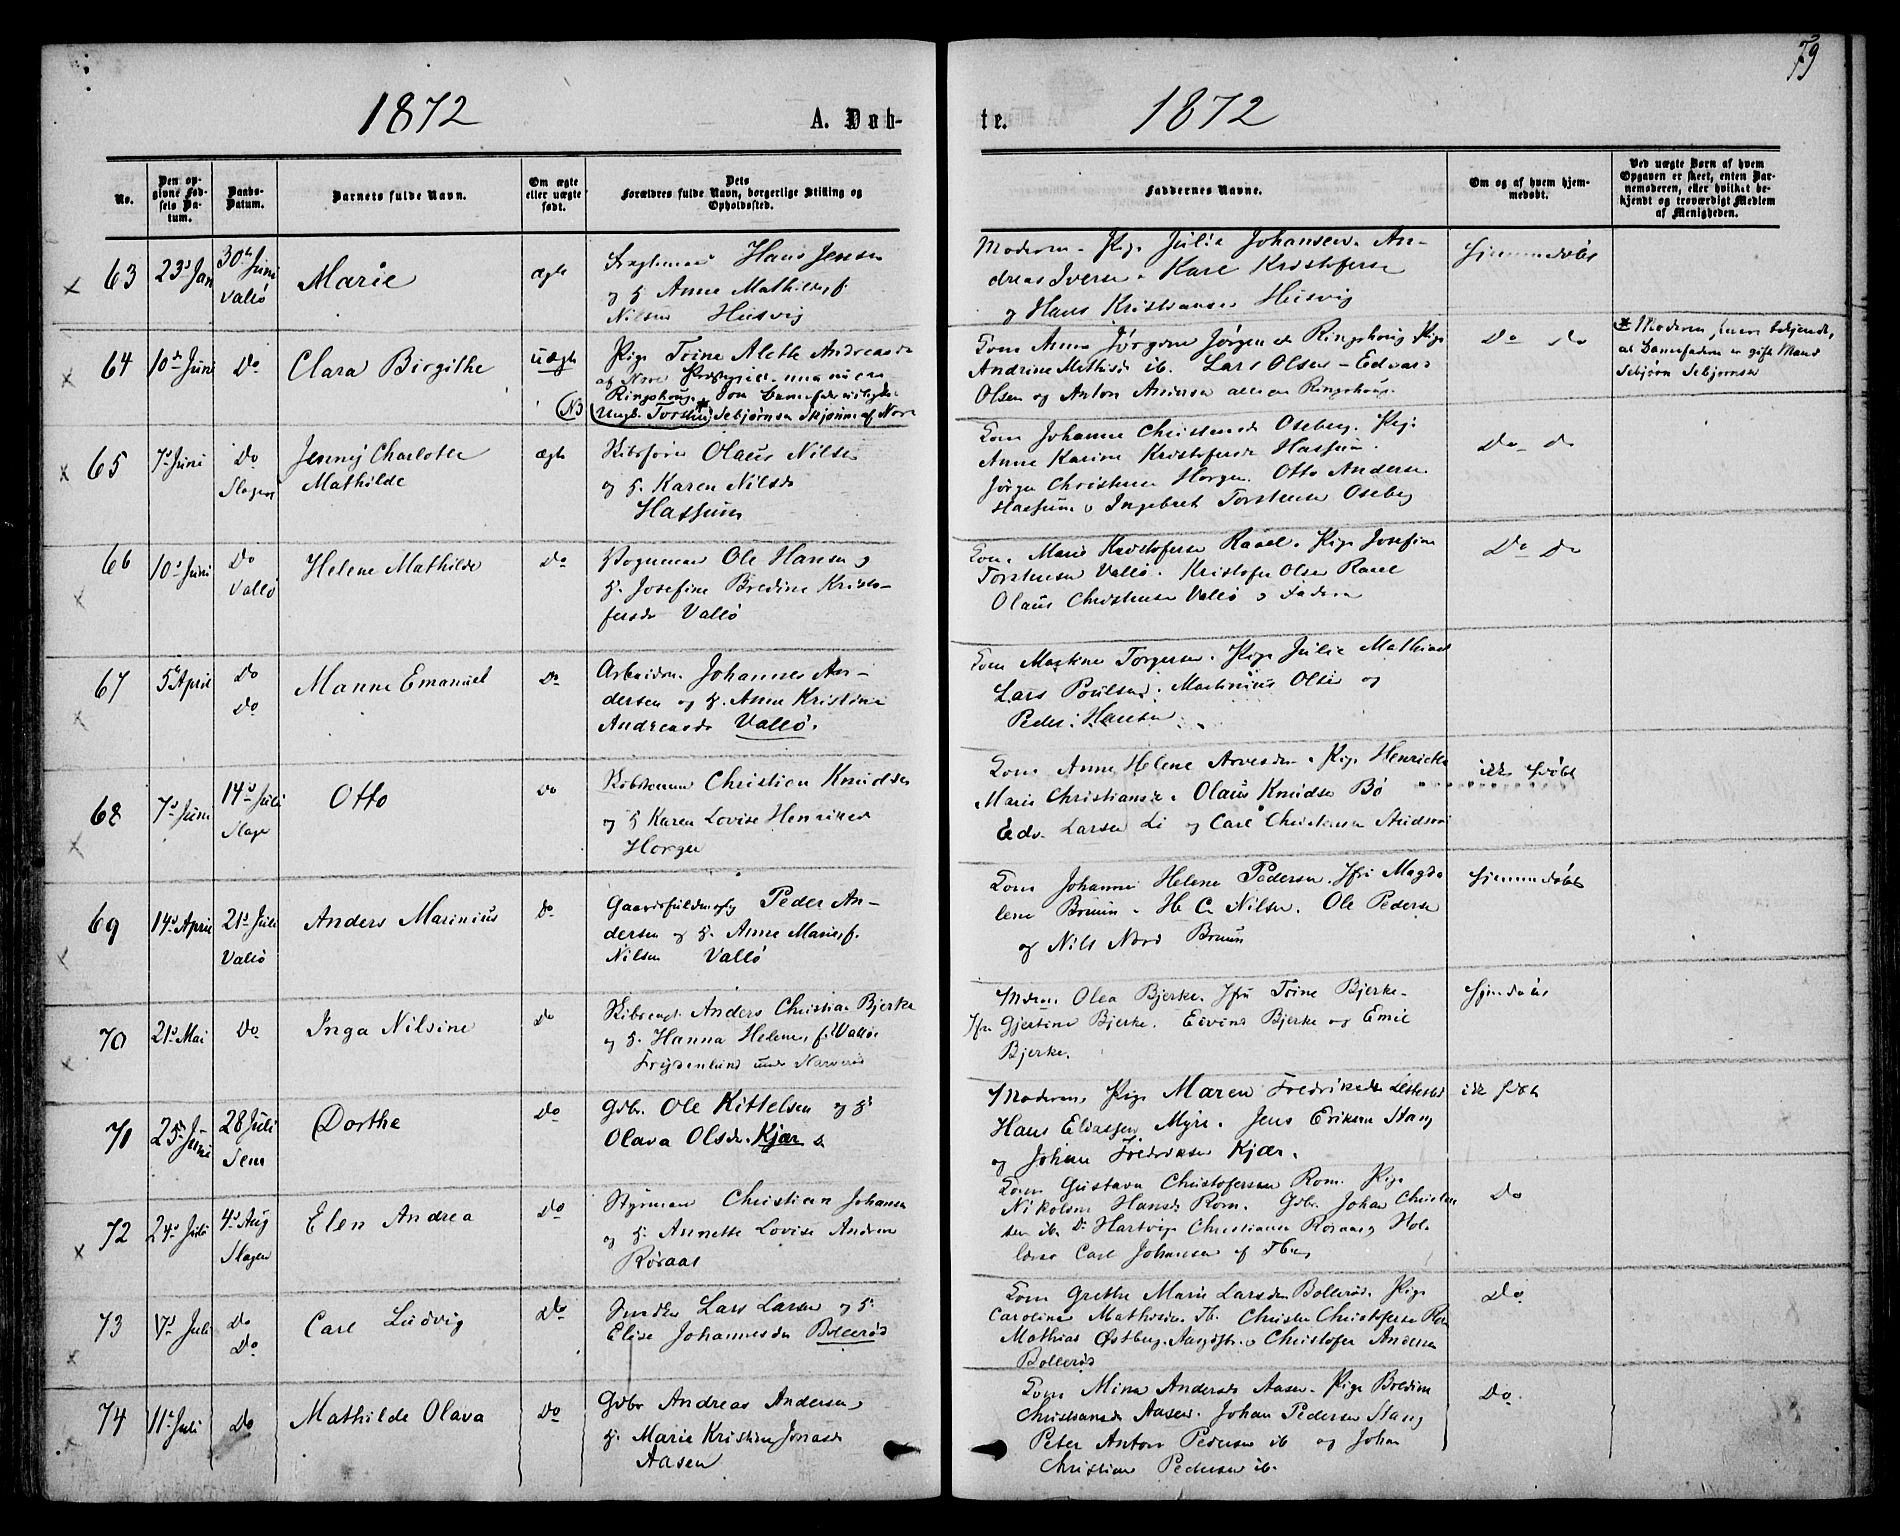 79
1872
A. Døb-
te.
1872
No.
Den op-
givne Fød-
sels Da-
tum.
Daabs-
Datum.
Barnets fulde Navn.
Om ægte
eller uægte
født.
Dets
Forældres fulde Navn, borgerlige Stilling og
Opholdssted.
Faddernes Navne.
Om og af hvem hjem-
medøbt.
Ved uægte Børn af hvem
Opgaven er skeet, enten Bar-
nemoderen, eller hvilket be-
kjendt og troværdigt Medlem
af Menigheden.
63
23d Jan
30te Juni
Vallø
Marie
ægte
Hans Jensen
og H. Anne Mathilde, f.
Nilsen Husvig
Moderen. Pige Julie Johansen. An-
dreas Iversen. Karl Kristofersen
og Hans Kristiansen Husvig
Hjemmedøbt
64
10de Juni
Do
Clara Birgithe
uægte
Pige Trine Alette Andreasdr
af Nøtterø
Ringshoug.
NB
Ungk. Torsten Sebjørnsen
Kone Anna Jørgine Jørgensdr Ringshoug Pige
Andrine Mathisdr ib. Lars Olsen - Edvard
Olsen og Anton alle paa Ringshoug.
Do Do
* Moderen
at Barnefaderen er gift Mand
Sebjørn Sebjørnsen
65
7d Juni
Do
Slagen
Jennÿ Charlotte
Mathilde
ægte
Olaus Nilsen
og H. Karen Nilsdr
Hassum
Kone Johanne Christensdr Oseberg. Pige
Anne Karine Kristofersdr Hassum.
Jørgen Christensen Horgen. Otto Andersen
Hassum o Ingebret Torstensen Oseberg
Do Do
66
10d Juni
Do
Vallø
Helene Mathilde
Do
Ole Hansen og
H. Josefine Bredine Kristo-
fersdr Vallø
Kone Marie Kristofersen Raael. Pige Josefine
Torstensen Vallø. Kristofer Olsen Raael
Olaus Christensen Vallø o Faderen
Do Do
67
5te April
Do
Do
Manne Emanuel
Do
Arbeidsm. Johannes An-
dersen og H. Anne Kristine
Andreasdr Vallø.
Kone Martine Torgersen. Pige Julie Mathiasd
Lars Poulsen. Martinius Olsen og
Peder Hansen
68
7d Juni
14d Juli
Slagen
Otto
Do
Christian Knudsen
og H Karen Lovise Henriksd
Horgen
Kone Anne Helene Arvesdr. Pige Henriette
Marie Christiansen. Olaus Knudsen Bø
Edv. Larsen Li og Carl Christensen
ikke Hdøbt
69
14d April
21d Juli
Vallø
Anders Marinius
Do
Peder An-
dersen og H. Anne Marie, f.
Nilsen Vallø
Kone Johanne Helene Pedersen. Jfru Magda
lene Bruun. H C Nilsen. Ole Pedersen
og Nils Bruun
Hjemmedøbt
70
21d Mai
Do
Inga Nilsine
Do
Anders Christian Bjerke
og H. Hanna Helene, f. Wallø.
Frydenlund under Narverød
Moderen Olea Bjerke. Jfru Trine Bjerke.
Jfru Gjertine Bjerke. Eivind Bjerke og Emil
Bjerke.
Hjemdøbt
71
25d Juni
28 Juli
Sem
Dorthe
Do
Gdbr. Ole Kittelsen og H
Olava Olsdr. Kjær
Moderen. Pige Maren Fredriksdr
Hans Eliassen Myre. Jens Eriksen Stang
og Johan Fredriksen Kjær.
ikke Hdøbt
72
24d Juli
4d Aug
Slagen
Elen Andrea
Do
Styrmand Christian Johansen
og H. Annette Lovise Andersen
Røraas
Kone Gustava Christofersen Rom. Pige
Nikoline Hansdr Rom. Gdbr. Johan Christen
sen ib. Do Hartvig Christiansen Røraas,
Carl Johansen af Tbrg
Do
73
Juli
Do
Do
Carl Ludvig
Do
Lars Larsen og H.
Elise Johannesdr Bollerød
Kone Grethe Marie Larsdr Bollerød. Pige
Caroline Mathisdr Tb. Christen Christofersen
Mathias Østberg, o Christofer Andersen
Bollerød
Do
74
11d Juli
Do
Mathilde Olava
Do
Gdbr Andreas Andersen,
H. Marie Kristine Jonasdr
Aasen
Kone Mina Andersdr Aasen. Pige Boldine
Christiansdr Aasen. Johan Pedersen Stang
Peter Anton Pedersen ib og Johan
Christian Pedersen ib.
Do.